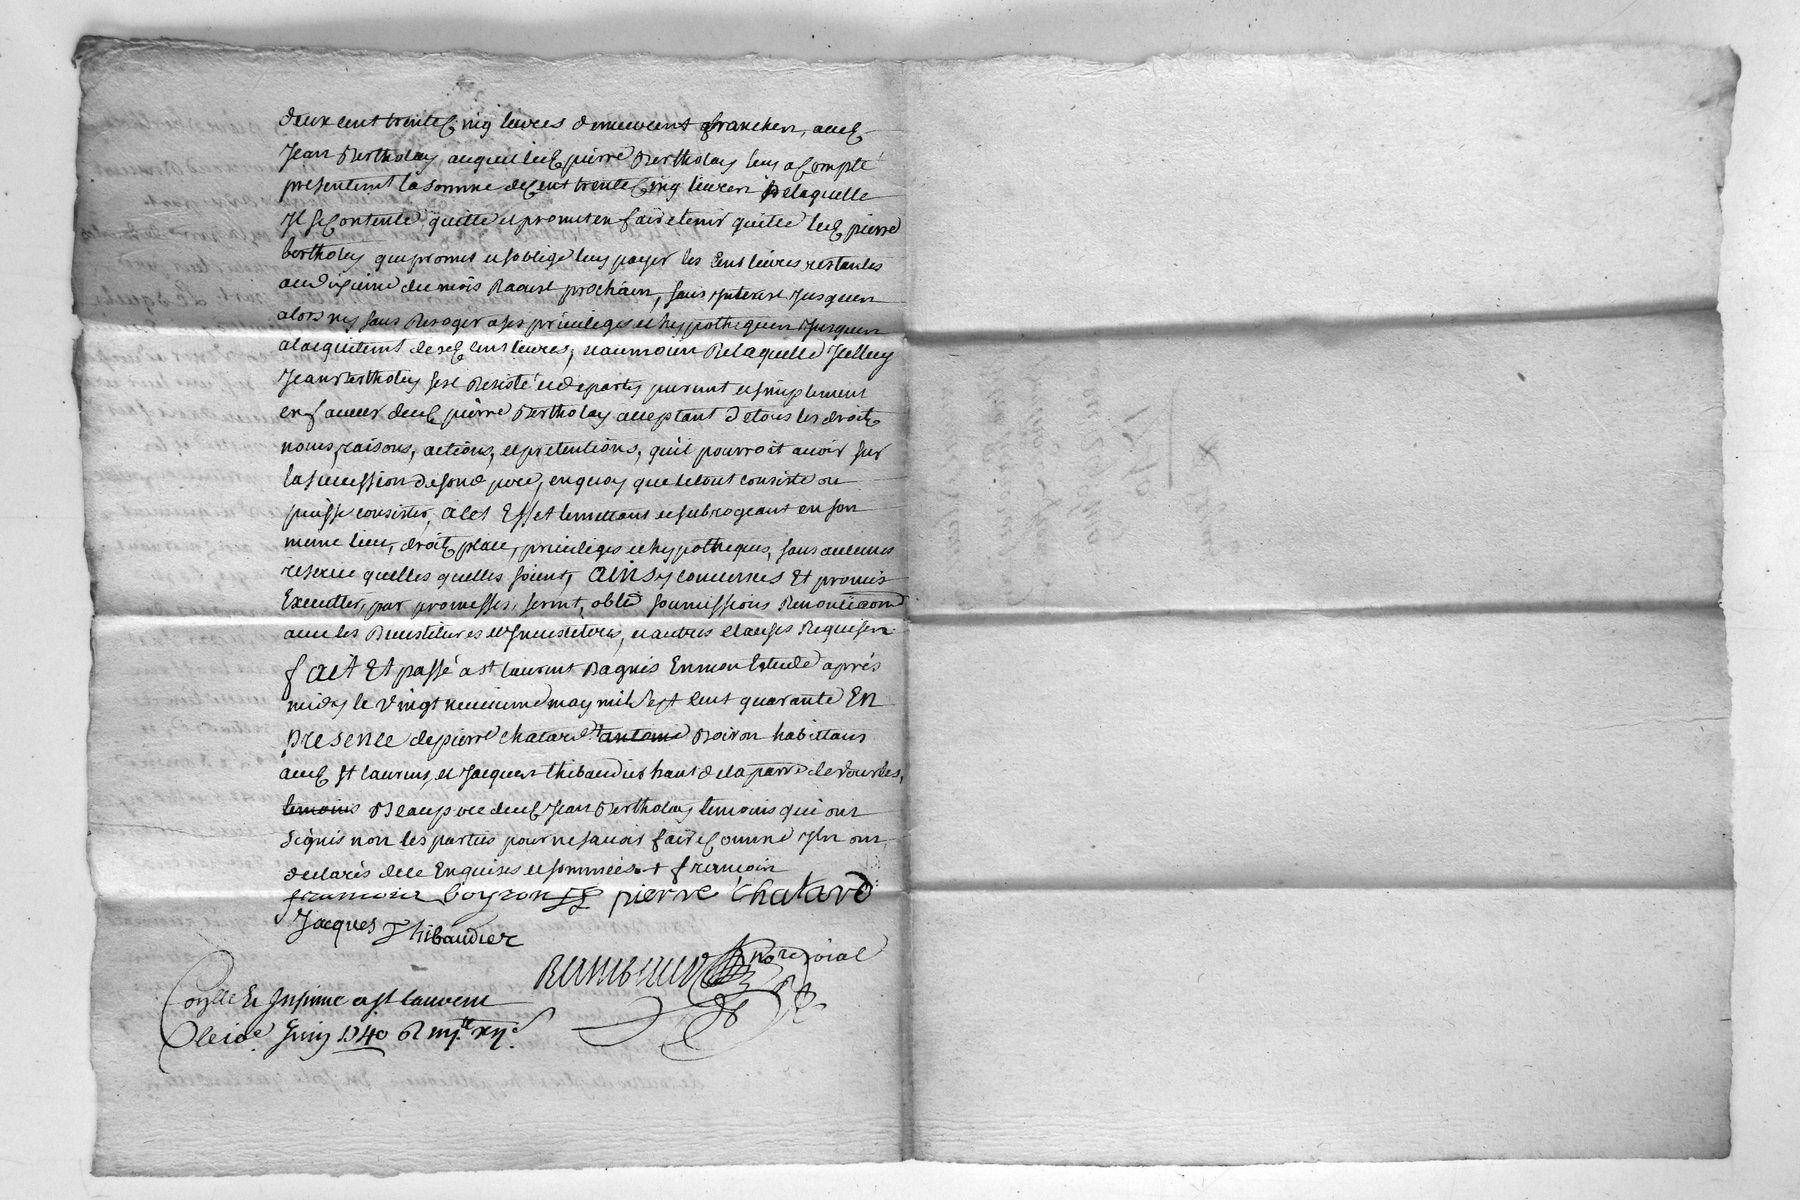 deux cent trente Cinq livres demeurent franches, aud.
Jean Bertholay auquel led. pierre Bertholay luy a Compté
presentemt la somme de Cent trente Cinq livres De laquelle
Il se Contente quitte et promet en faire tenir quitte led. pierre
bertholay qui promet et s'oblige luy payer les Cent livres restantes
au dixieme du mois Daoust prochain, sans Interest Jusques
alors ny sans Deroger a ses privileges et hypotheques Jusques
a lacquitemt desd. Cent livres, et au moien De laquelle Jcelluy
Jean Bertholay s'est Desisté et departy puremt et simplement
en faveur dud. pierre Bertholay acceptant De tous les droits
noms, raisons, actions, et pretentions, qu'il pourroit avoir sur
la succession de son d. pere, en quoy que le tout consiste ou
puisse consister, a cet Effet le mettant et subrogeant en son
meme lieu, droit, place, privileges et hypotheques, sans aucunes
reserve quelles quelles soient, Ainsy convenues Et promis
Executter, par promesses, sermt, oblé soumissions Renontiaons
avec les Dessaisines et Investitures, et autres clauses Requises
fait Et passé a st laurent Dagnis En mon Estude après
midy le Vingt neuvieme may mil Sept Cent quarante En
Presence de pierre Chatard + antoine Boiron habittans
aud. st laurens, et Jacques thibaudier hant de la parre de
temoins Beaupere dud. Jean Bertholay temoins qui ont
signés non les parties pour ne savoir faire Comme Ils ont
declarés de ce Enquises et sommées. + francoin
francois boyron pierre Chatard
Jacques Thibaudier
nore roial
Conllé Et Insinué a st laurent
le 10e Juin 1740 R